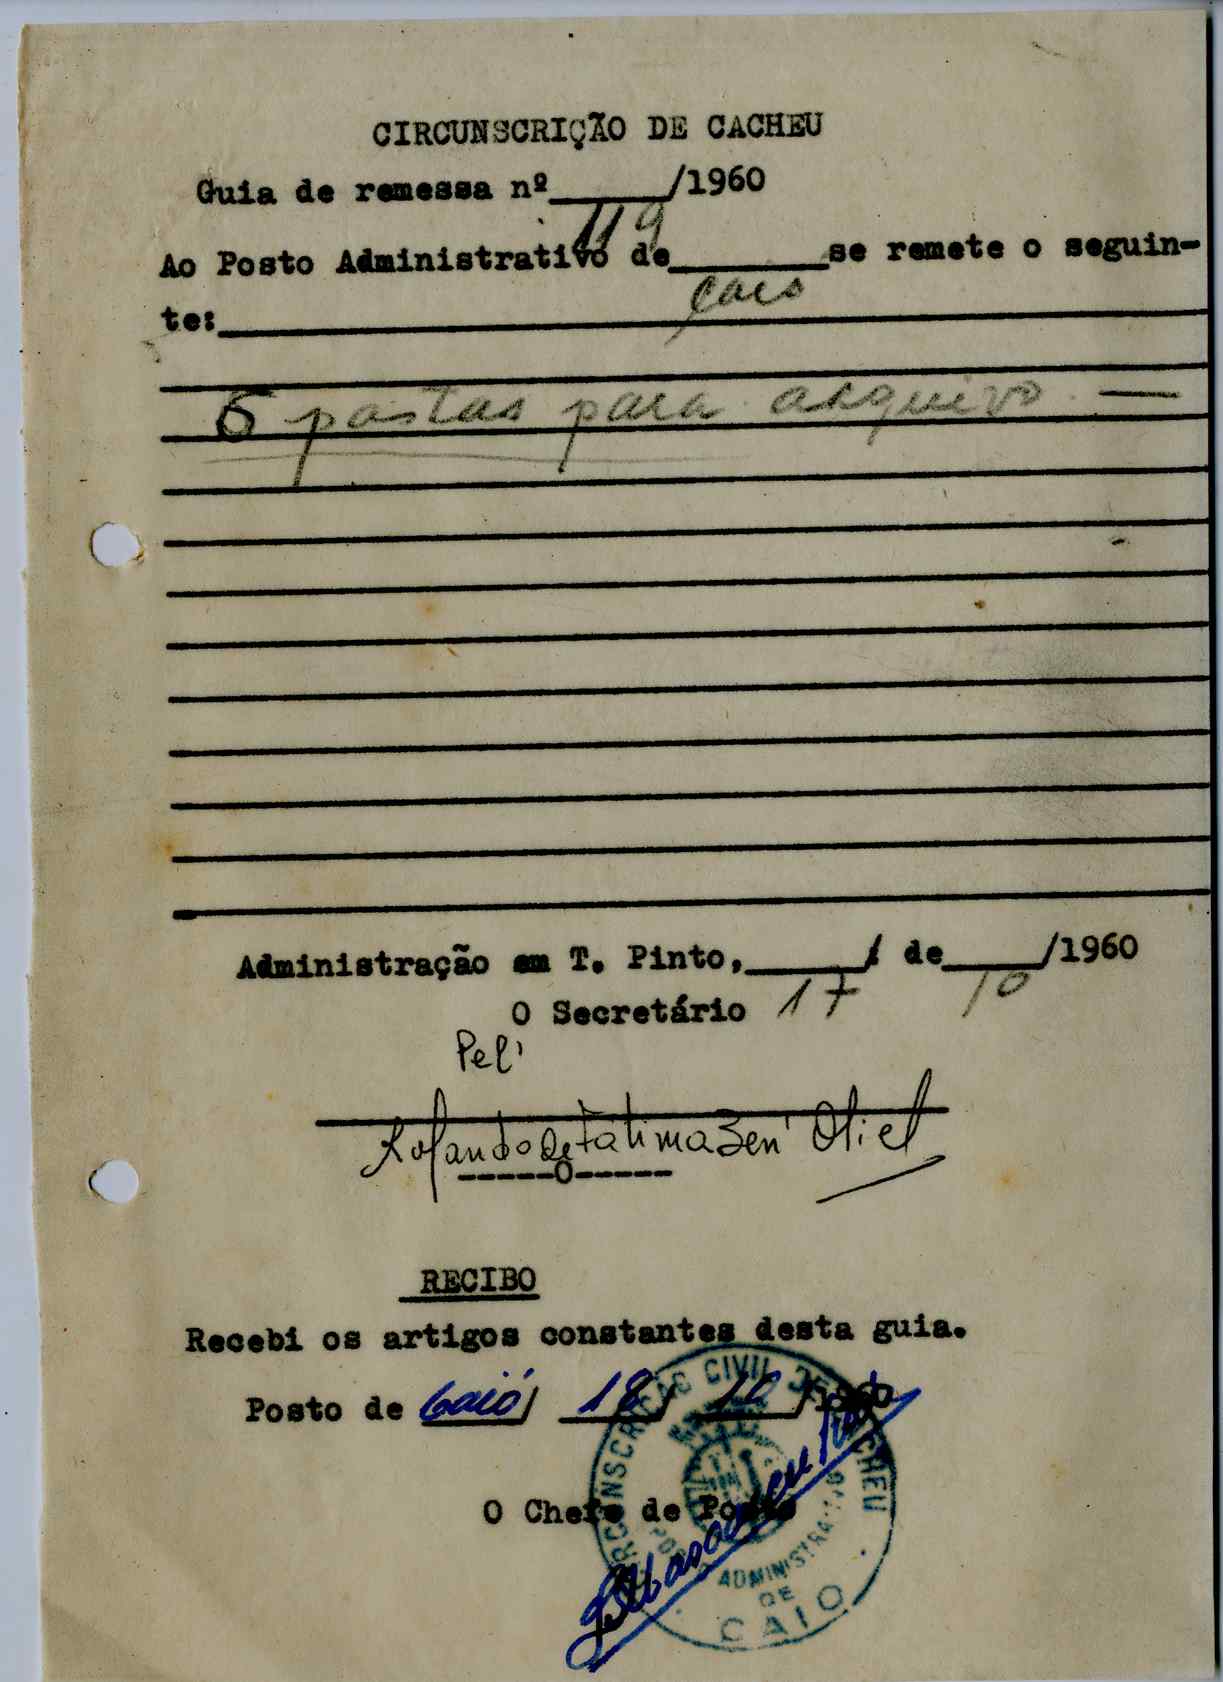 CIRCUNSCRIÇÃO DE CACHEU
Guia de remessa nº 119/1960
Ao Posto Administrativo de Caió se remete o seguin-
te:
6 pastas para arquivo —
Administração em T. Pinto, 17/ de 10/1960
O Secretário
Pel'
Rolando de Fátima Ben' Oliel
-----O-----
RECIBO
Recebi os artigos constantes desta guia.
Posto de Caió/ 18/ 10/1960
O Chefe de Posto
CIRCUNSCRIÇÃO CIVIL DE CACHEU
POSTO ADMINISTRATIVO
DE
CAIO